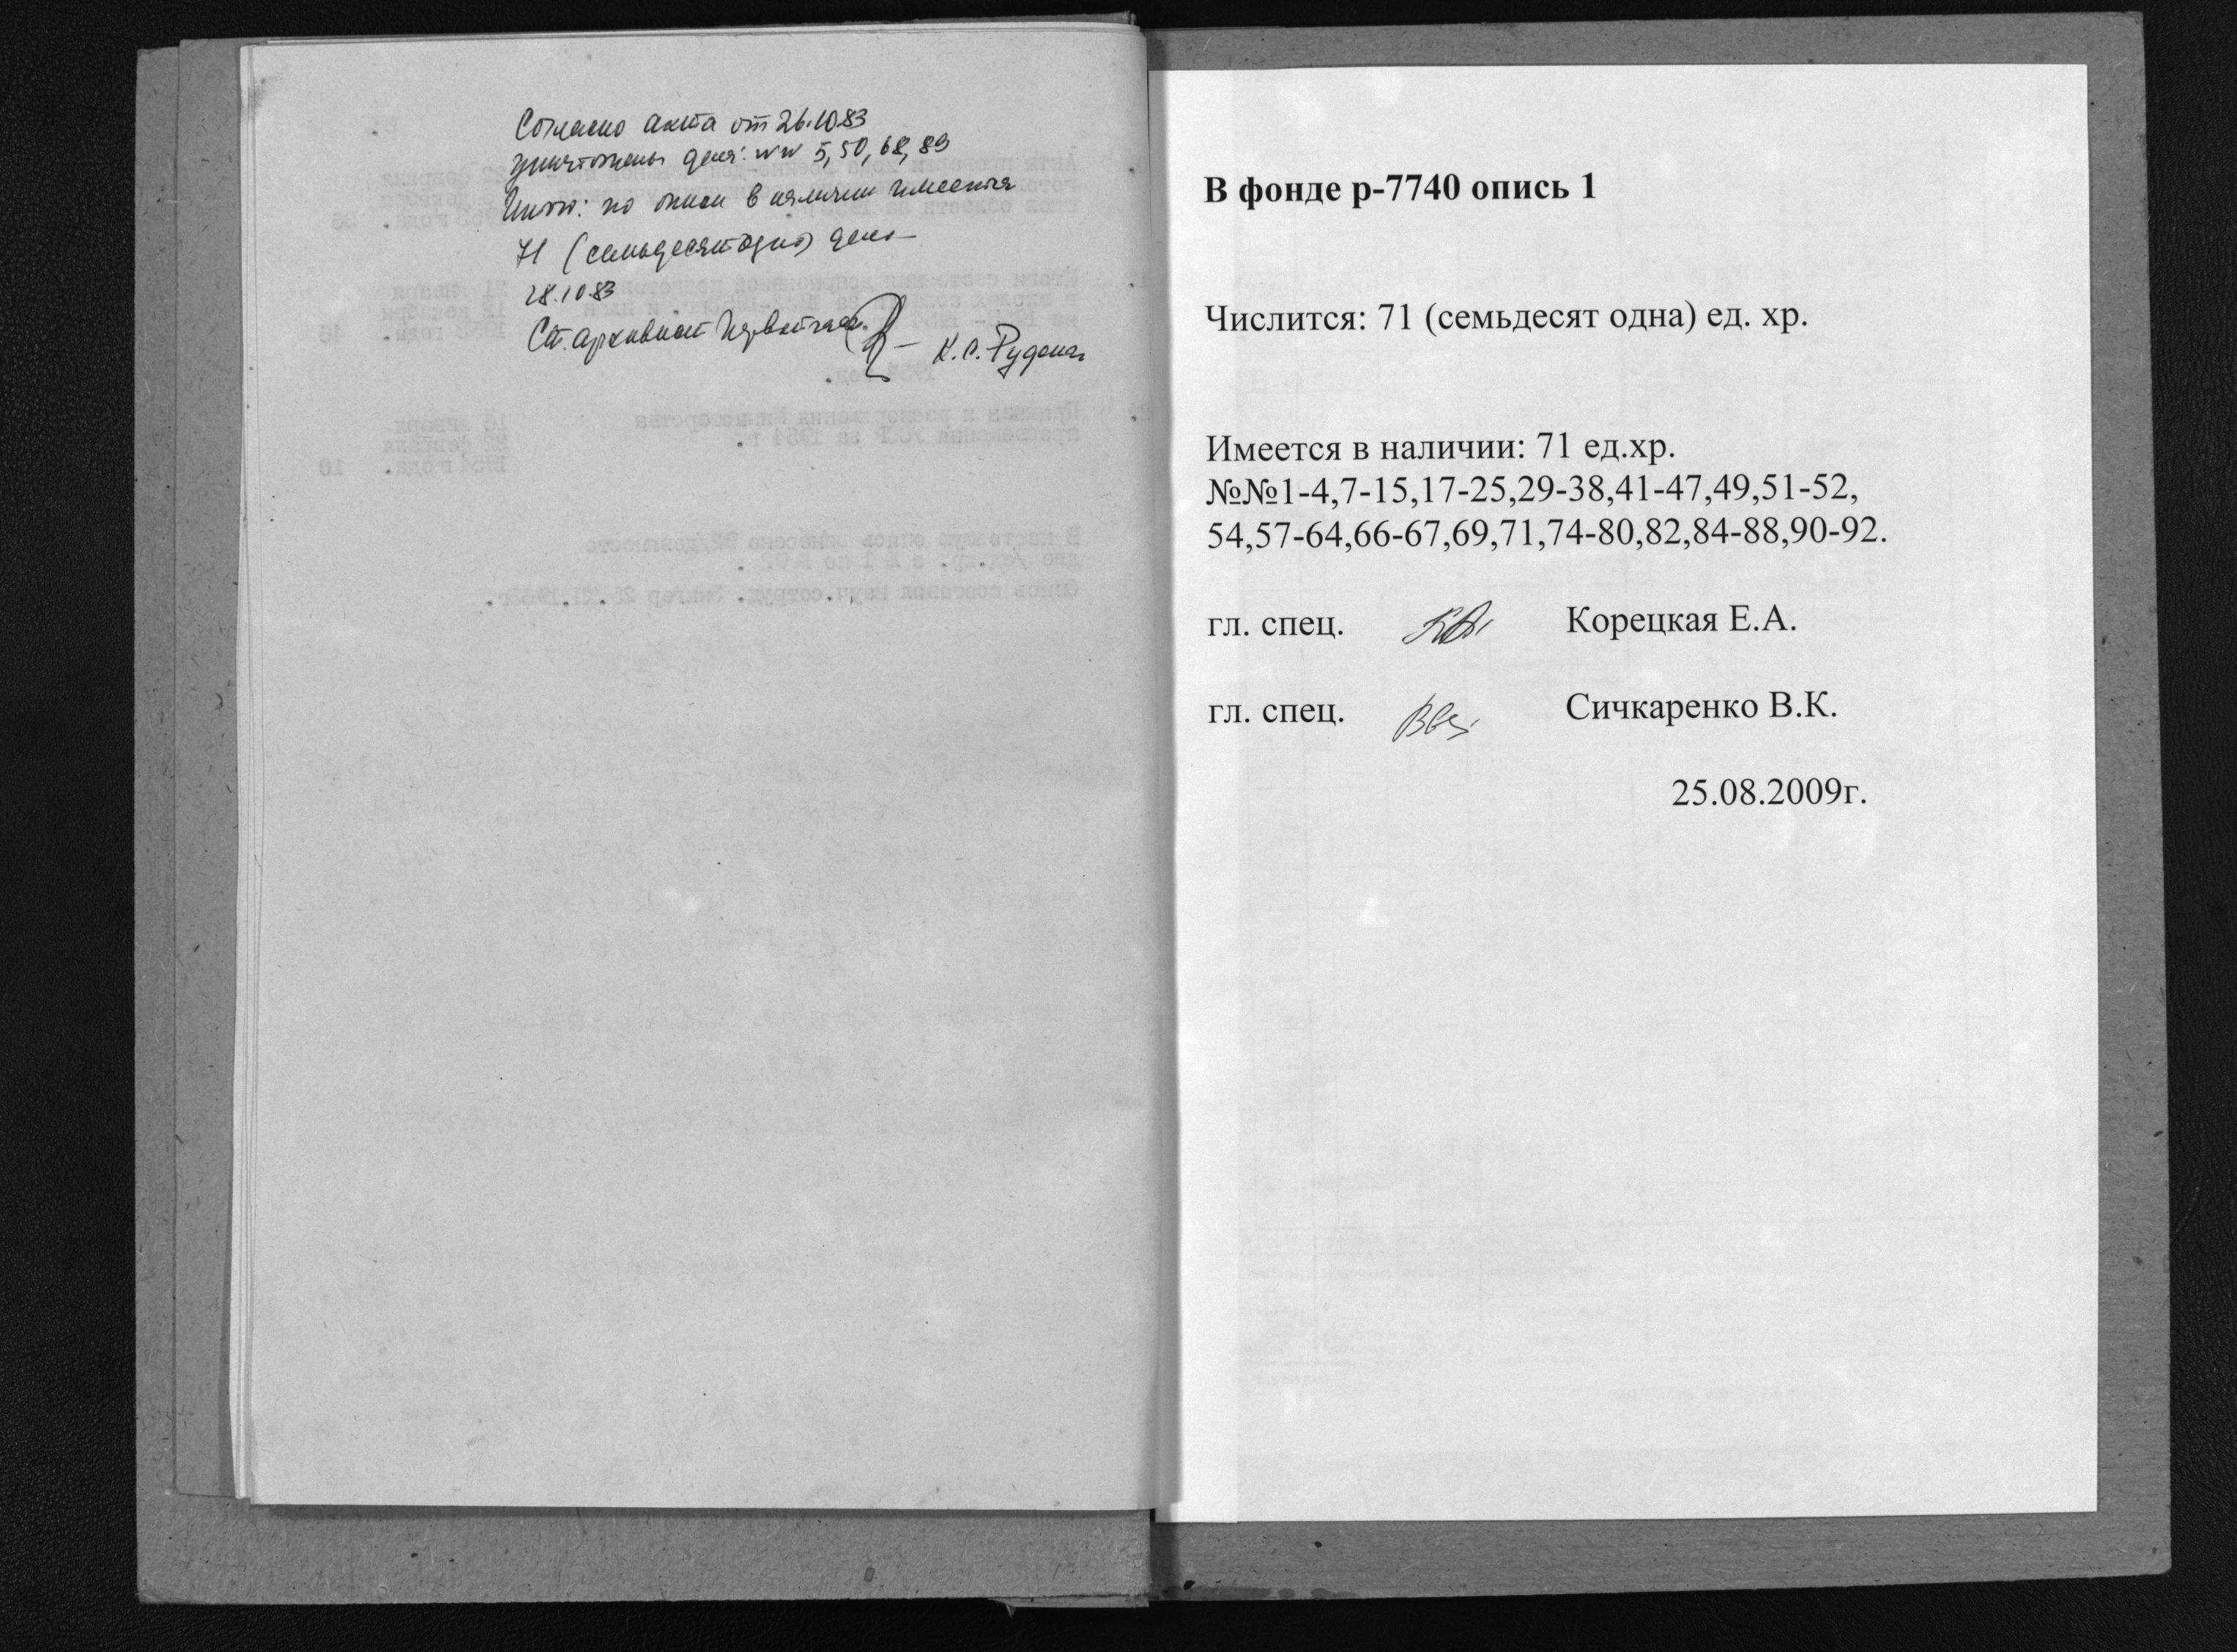 Согласно акта от 26.10.83
уничтожены дела: №№ 5, 50, 68, 89
Итого: по описи в наличии имеется
71 (семьдесят одно) дело
28.10.83
Ст. архивист К. С. Руденко
В фонде р-7740 опись 1
Числится: 71 (семьдесят одна) ед. хр.
Имеется в наличии: 71 ед.хр.
№№1-4,7-15,17-25,29-38,41-47,49,51-52,
54,57-64,66-67,69,71,74-80,82,84-88,90-92.
гл. спец. Корецкая Е.А.
гл. спец. Сичкаренко В.К.
25.08.2009г.